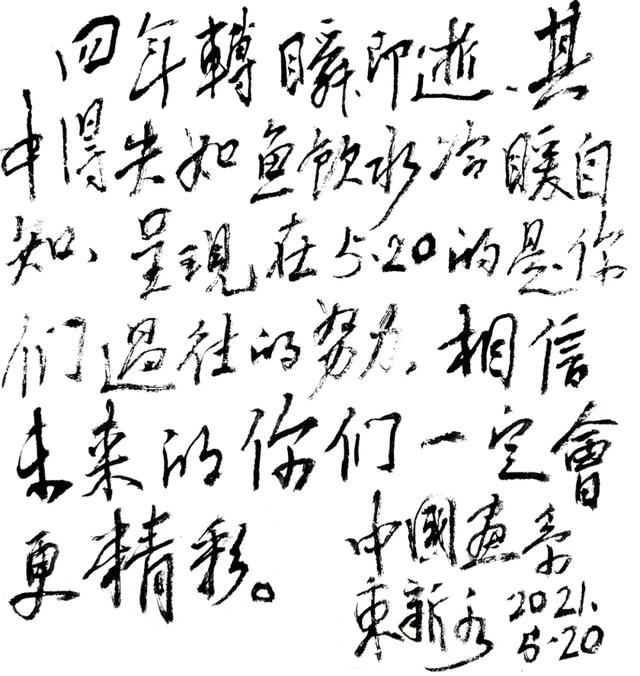 四年轉瞬即逝、其
中得失如魚飲水冷暖自
知、呈現在5·20的是你
们過往的努力。相信
未来的你们一定會
更精彩。
中國畫系
東新永 2021.
5·20